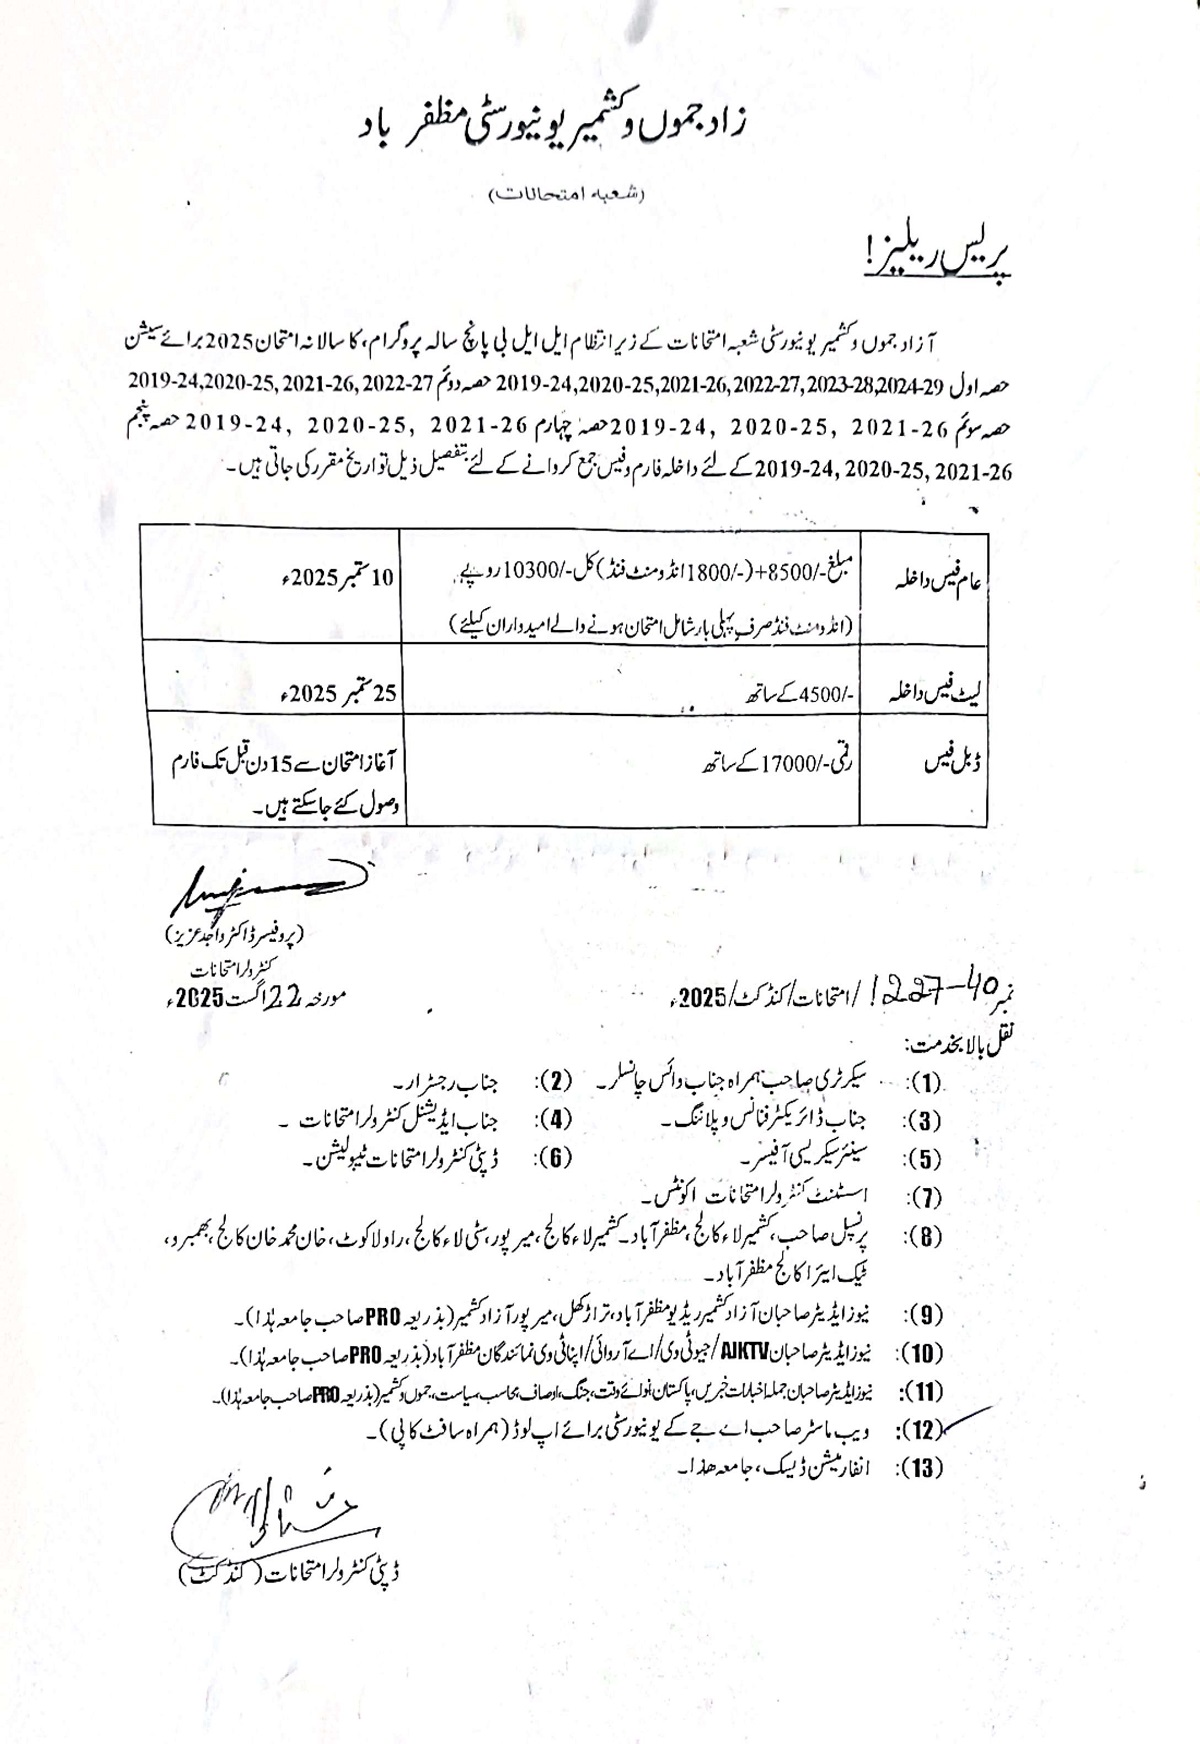 زاد جموں و کشمیر یونیورسٹی مظفر باد
(شعبہ امتحانات)
پریس ریلیز!
آزاد جموں و کشمیر یونیورسٹی شعبہ امتحانات کے زیر انتظام ایل ایل بی پانچ سالہ پروگرام، کا سالانہ امتحان 2025 برائے سیشن
حصہ اول 2019-24,2020-25,2021-26,2022-27,2023-28,2024-29 حصہ دوئم 2019-24,2020-25, 2021-26, 2022-27
حصہ سوئم 2019-24, 2020-25, 2021-26 حصہ چہارم 2019-24, 2020-25, 2021-26 حصہ پنجم
2019-24, 2020-25, 2021-26 کے لئے داخلہ فارم و فیس جمع کروانے کے لئے بتفصیل ذیل تواریخ مقرر کی جاتی ہیں۔
عام فیس داخلہ مبلغ -/8500+(-/1800 انڈومنٹ فنڈ) کل -/10300 روپے 10 ستمبر 2025ء
(انڈومنٹ فنڈ صرف پہلی بار شامل امتحان ہونے والے امیدواران کیلئے)
لیٹ فیس داخلہ -/4500 کے ساتھ 25 ستمبر 2025ء
ڈبل فیس رقمی -/17000 کے ساتھ آغاز امتحان سے 15 دن قبل تک فارم
وصول کئے جاسکتے ہیں۔
(پروفیسر ڈاکٹر واجد عزیز)
کنٹرولر امتحانات
نمبر 1227-40 / امتحانات / کنڈکٹ / 2025ء مورخہ 22 اگست 2025ء
نقل بالا بخدمت:
(1): سیکرٹری صاحب ہمراہ جناب وائس چانسلر۔ (2): جناب رجسٹرار۔
(3): جناب ڈائریکٹر فنانس و پلاننگ۔ (4): جناب ایڈیشنل کنٹرولر امتحانات ۔
(5): سینئر سیکریسی آفیسر۔ (6): ڈپٹی کنٹرولر امتحانات ٹیبولیشن۔
(7): اسسٹنٹ کنٹرولر امتحانات اکونٹس۔
(8): پرنسپل صاحب، کشمیر لاء کالج، مظفرآباد۔ کشمیر لاء کالج، میرپور، سٹی لاء کالج، راولاکوٹ، خان محمد خان کالج، بھمبر و،
ٹیک ایرا کالج مظفرآباد۔
(9): نیوز ایڈیٹر صاحبان آزاد کشمیر ریڈیو مظفرآباد، تراڑکھل، میرپور آزاد کشمیر (بذریعہ PRO صاحب جامعہ ہٰذا)۔
(10): نیوز ایڈیٹر صاحبان AJKTV / جیو ٹی وی / اے آر وائی / اپنا ٹی وی نمائندگان مظفرآباد (بذریعہ PRO صاحب جامعہ ہٰذا)۔
(11): نیوز ایڈیٹر صاحبان جملہ اخبارات خبریں، پاکستان، نوائے وقت، جنگ، اوصاف، محاسب، سیاست، جموں و کشمیر (بذریعہ PRO صاحب جامعہ ہٰذا)۔
(12): ویب ماسٹر صاحب اے جے کے یونیورسٹی برائے اپ لوڈ (ہمراہ سافٹ کاپی)۔
(13): انفارمیشن ڈیسک، جامعہ ھذا۔
ڈپٹی کنٹرولر امتحانات (کنڈکٹ)